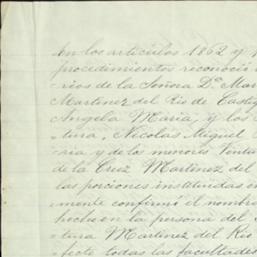 en los artículos 1862 y
procedimientos reconoció
rios de la Señora Da. Mar
Martinez del Rio de Castig
Angela Maria, y los
tura, Nicolas Miguel
ria y de la menores Ventu
de la Cruz Martinez del
las porciones instituidas en
mente confirmó el nombra
hecho en la persona del
tura Martinez del Rio
fecto todas las facultades